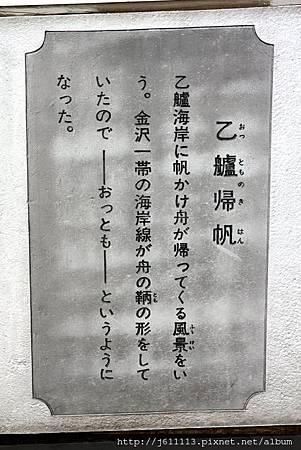 乙艫帰帆
おっとものきはん
乙艫海岸に帆かけ舟が帰ってくる風景をい
う。金沢一帯の海岸線が舟の鞆の形をして
いたので――おっとも――というように
なった。
ふうけい
とも
http://j611113.pixnet.net/album